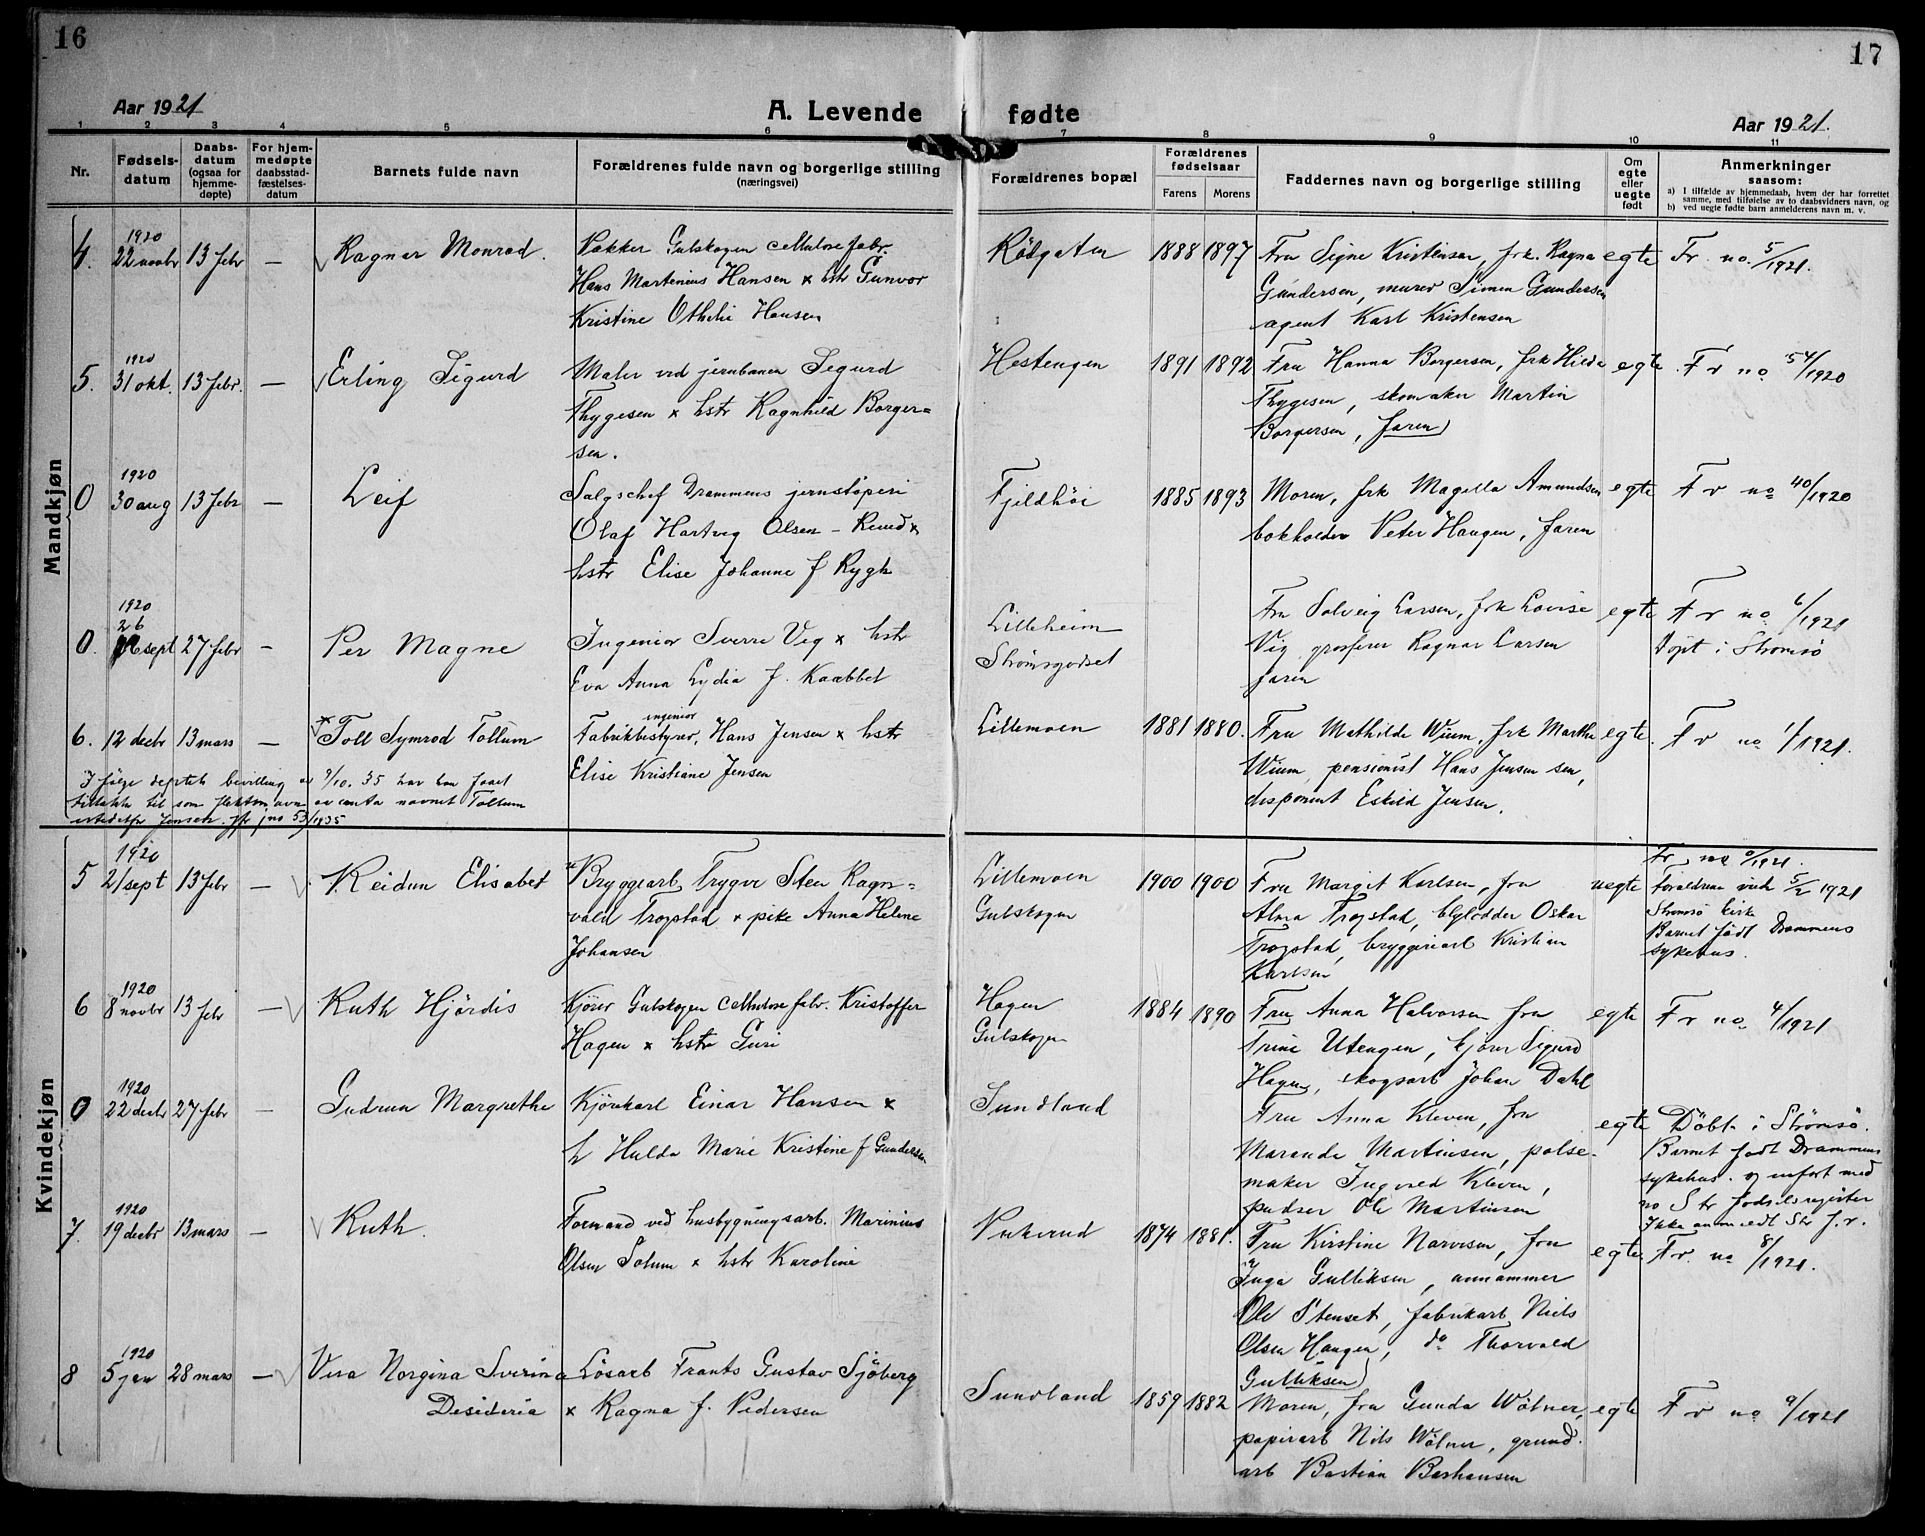 16
Aar 1921
A. Levende
1 2 3 4 5 6
Nr.
Fødsels-
datum
Daabs-
datum
(ogsaa for
hjemme-
døpte)
For hjem-
medøpte
daabsstad-
fæstelses-
datum
Barnets fulde navn
Forældrenes fulde navn og borgerlige stilling
(næringsvei)
Mandkjøn
1920
4. 22 novbr 13 febr — Ragnar Monrad.
Pakker Gulskogen cellulosefabr.
Hans Martenius Hansen x hstr Gunvor
Kristine Othilie Hansen
1920
5. 31 okt. 13 febr. — Erling Sigurd
Maler ved jernbanen Sigurd
Thygesen x hstr Ragnhild Borger=
sen.
1920
0 30 aug 13 febr — Leif
Salgschef Drammens jernstøperi
Olaf Hartvig Olsen - Ruud x
hstr Elise Johanne f Rygh
1920
26
0. sept 27 febr — Per Magne
Ingeniør Sverre Vig x hstr
Eva Anna Lydia f. Kaabbel
6. 12 decbr 13 mars — Toll Symrod Tollum
ingeniør
Fabrikbestyrer, Hans Jensen x hstr
Elise Kristiane Jensen
I følge deptets bevilling av 9/10. 35 har han faaet
tillatelse til som slektsnavn av anta navnet Tollum
istedetfor Jensen. Jfr jno 53/1935
Kvindekjøn
1920
5 21 sept 13 febr — Reidun Elisabet
Bryggearb Trygve Sten Ragn=
vald Trogstad x pike Anna Helene
Johansen
1920
6 8 novbr 13 febr — Ruth Hjørdis
Kjører Gulskogen cellulosefabr. Kristoffer
Hagen x hstr Guri
1920
0 22 decbr 27 febr — Gudrun Margrethe
Kjørekarl Einar Hansen x
h Hulda Marie Kristine f Gundersen
1920
7. 19 decbr 13 mars — Ruth.
Formand ved husbygningsarb. Marinius
Olsen Solum x hstr Karoline
1920
8 5 jan 28 mars — Vera Norgina Sverina
Desideria
Løsarb Frants Gustav Sjøberg
x Ragna f. Pedersen
17
fødte
Aar 1921.
7 8 9 10 11
Forældrenes bopæl
Forældrenes
fødselsaar
Farens Morens
Faddernes navn og borgerlige stilling
Om
egte
eller
uegte
født
Anmerkninger
saasom:
a) I tilfælde av hjemmedaab, hvem der har forrettet
samme, med tilføielse av to daabsvidners navn, og
b) ved uegte fødte barn anmelderens navn m. v.
Rødgaten 1888 1897 Fru Signe Kristensen, frk. Ragna egte Fr. no. 5/1921.
Gundersen, murer Simen Gundersen
agent Karl Kristensen
Hestengen 1891 1892 Fru Hanna Borgersen, frk Hilda egte Fr no 54/1920
Thygesen, skomaker Martin
Borgersen, faren
Fjeldhøi 1885 1893 Moren, frk Magella Amundsen egte Fr no 40/1920
bokholder Peter Haugen, faren
Lilleheim
Strømsgodset
Fru Solveig Larsen, frk Lovise egte Fr no 6/1921
Vig, grosserer Ragnar Larsen Døpt i Strømsø
faren
Lillemoen 1881 1880. Fru Mathilde Wium, frk Marthe egte. Fr no 1/1921.
Wium, pensionist Hans Jensen sen,
disponent Eskild Jensen.
Lillemoen
Gulskogen
1900 1900 Fru Margit Karlsen, fru uegte
Alma Trogstad, blylodder Oskar
Trogstad, bryggeriarb Kristian
Karlsen
Foreldrene viet 5/2 1921
Strømsø kirke
Barnet født Drammens
sykehus.
Hagen
Gulskogen
1884 1890 Fru Anna Halvorsen fru egte Fr no 4/1921
Trine Utengen, kjører Sigurd
Hagen, skogsarb Johan Dahl
Sundland
Fru Anna Kleven, fru egte
Marande Martinsen, pølse-
maker Ingvald Kleven,
pudser Ole Martinsen
Døbt i Strømsø.
Barnet født Drammens
sykehus. og innført med
no Str fødselsregister
Ikke anmeldt Str f.r.
Pukerud 1874 1881. Fru Kirstine Narvesen, fru egte. Fr. no 8/1921.
Inga Gulliksen, annammer
Ole Stenset, fabrikarb Niels
Olsen Haugen, do Thorvald
Gulliksen
Sundland 1859 1882 Moren, fru Gunda Wølner, egte Fr no 9/1921
papirarb Nils Wølner, grund.
arb Bastian Barhansen